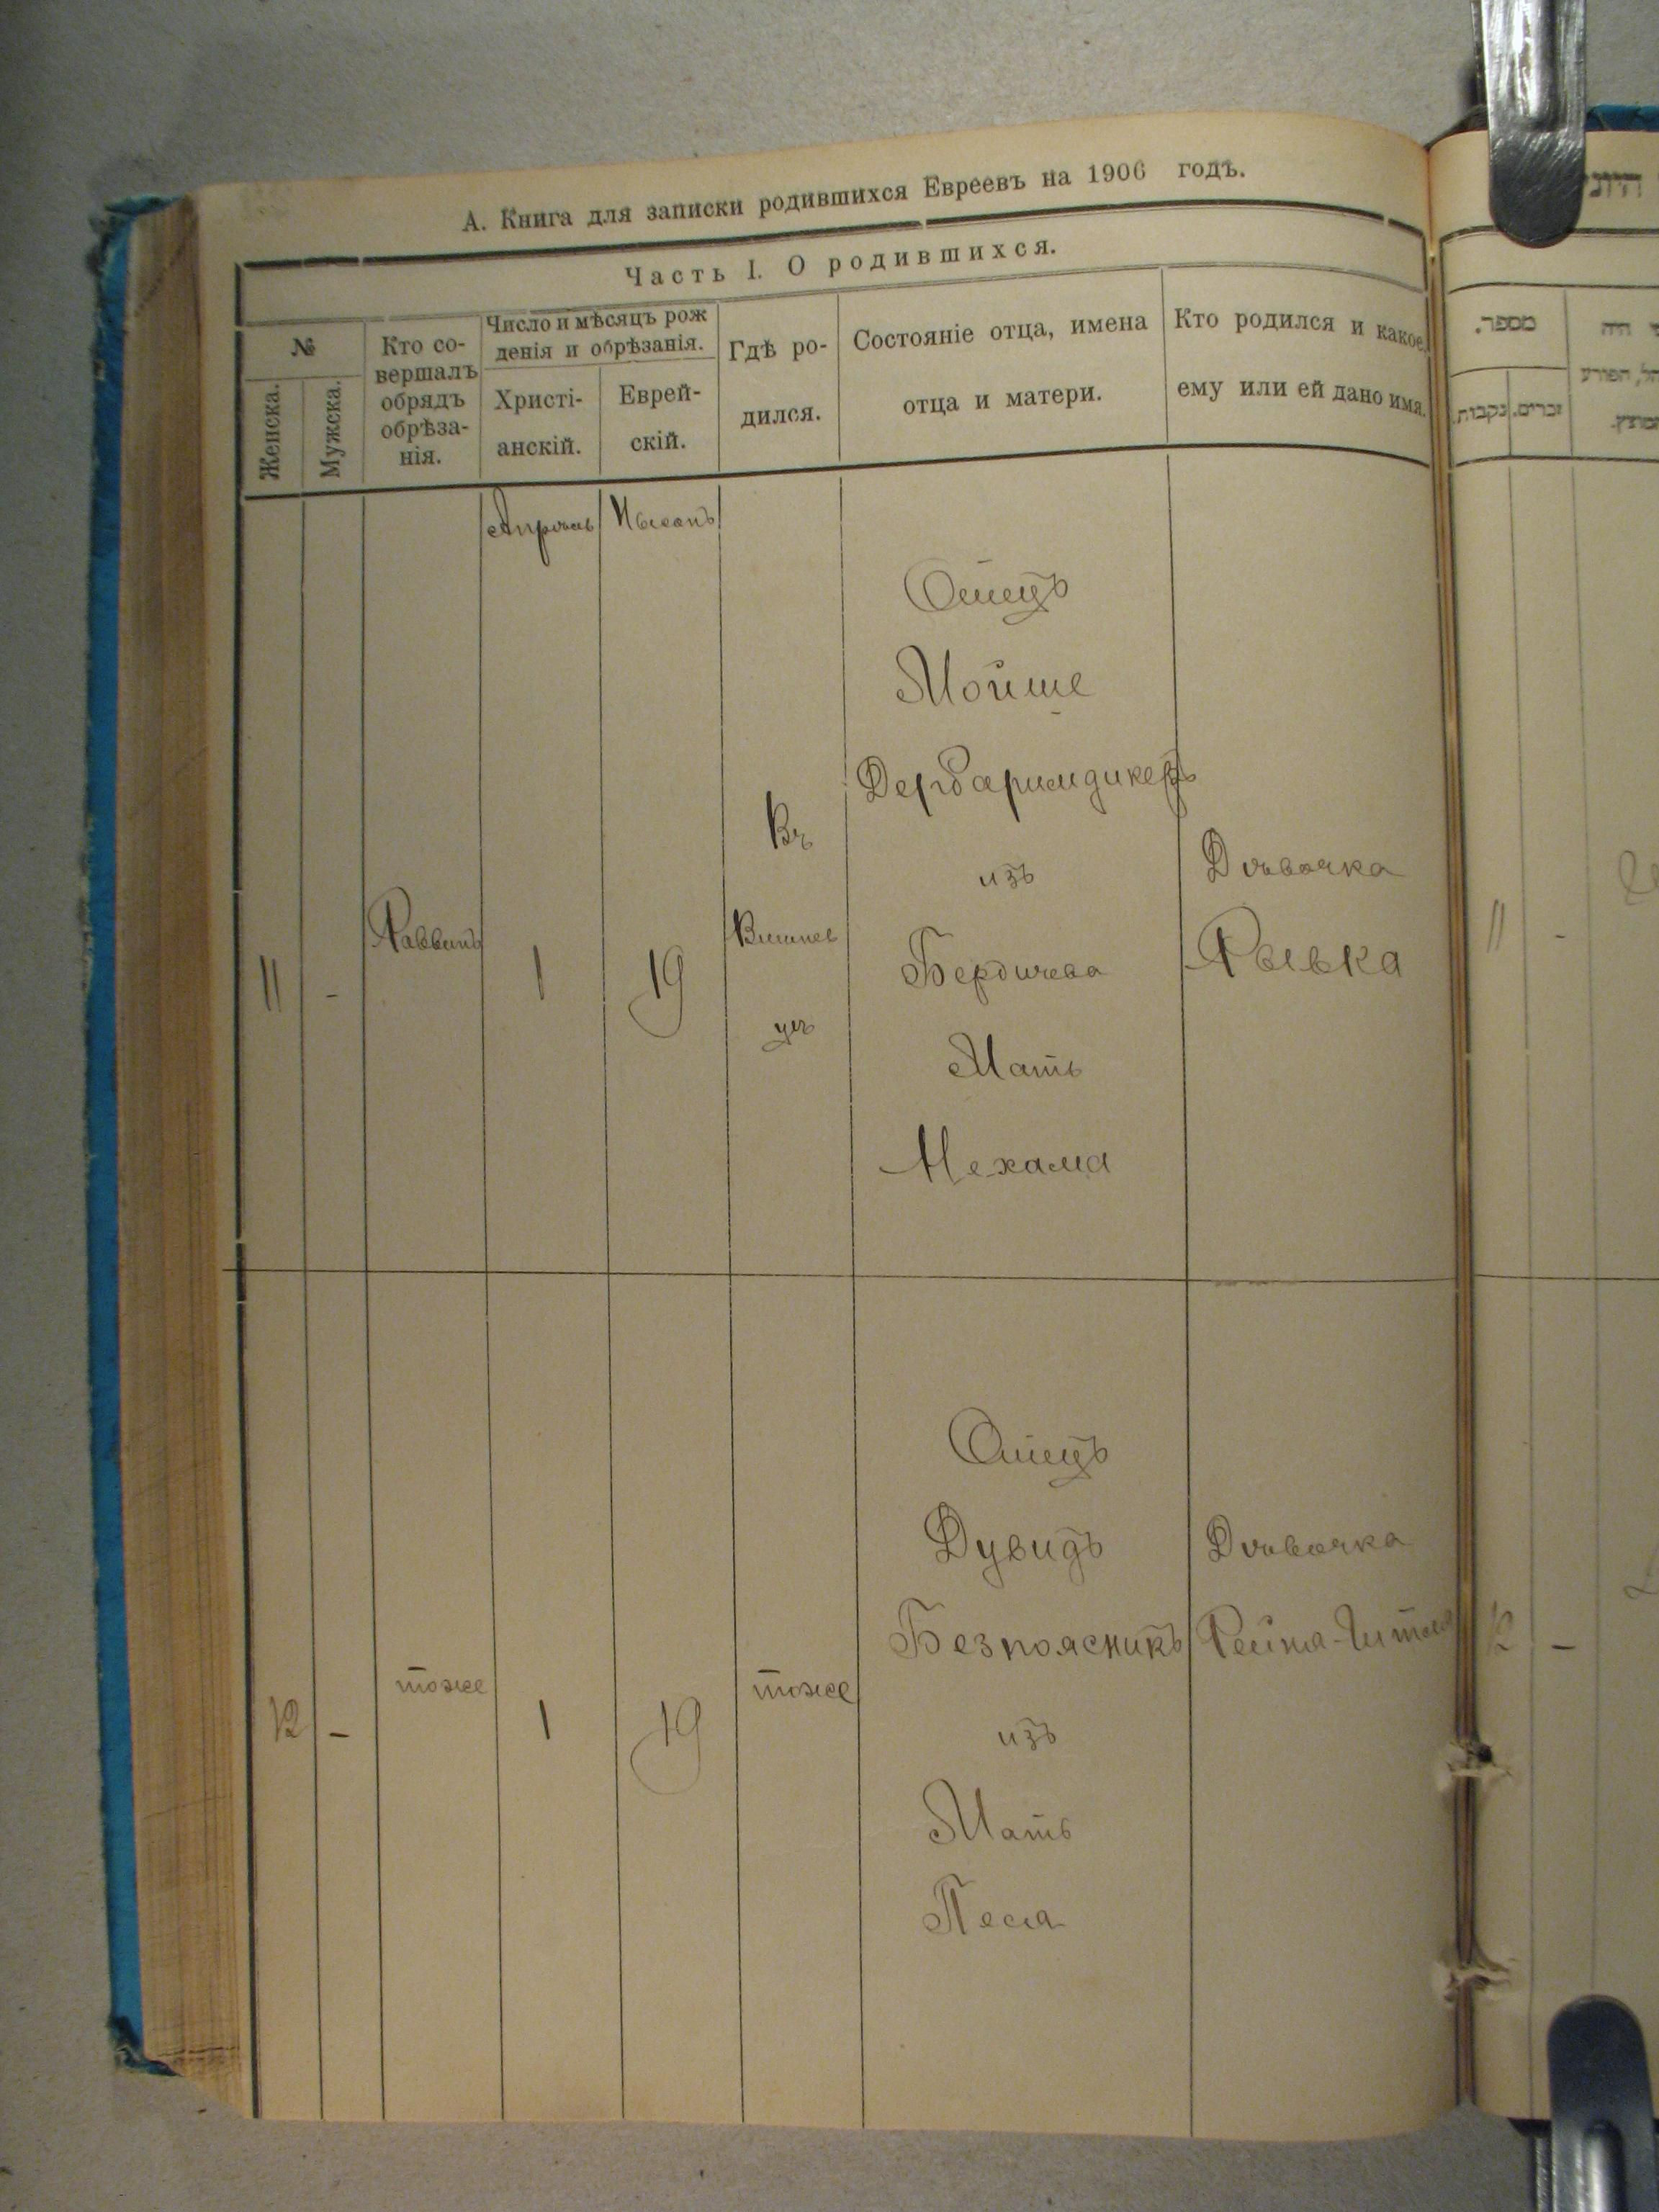 А. Книга для записки родившихся Евреевъ на 1906 годъ.
Часть I. О родившихся.
№
Женска.
Мужска.
Кто со-
вершалъ
обрядъ
обрѣза-
нія.
Число и мѣсяцъ рож
денія и обрѣзанія.
Христі-
анскій.
Еврей-
скій.
Гдѣ ро-
дился.
Состояніе отца, имена
отца и матери.
Кто родился и какое
ему или ей дано имя.
מספר.
נקבות.
זכרים.
Апрѣль
Нысонъ
11
-
Раввинъ
1
19
Въ
цѣ
Отецъ
Мойше
Дербаримдикеръ
изъ
Бердичева
Мать
Нехама
Дѣвочка
Рывка
11
-
12
-
тоже
1
19
тоже
Отецъ
Дувидъ
Безпоясникъ
изъ
Мать
Песя
Дѣвочка
12
-